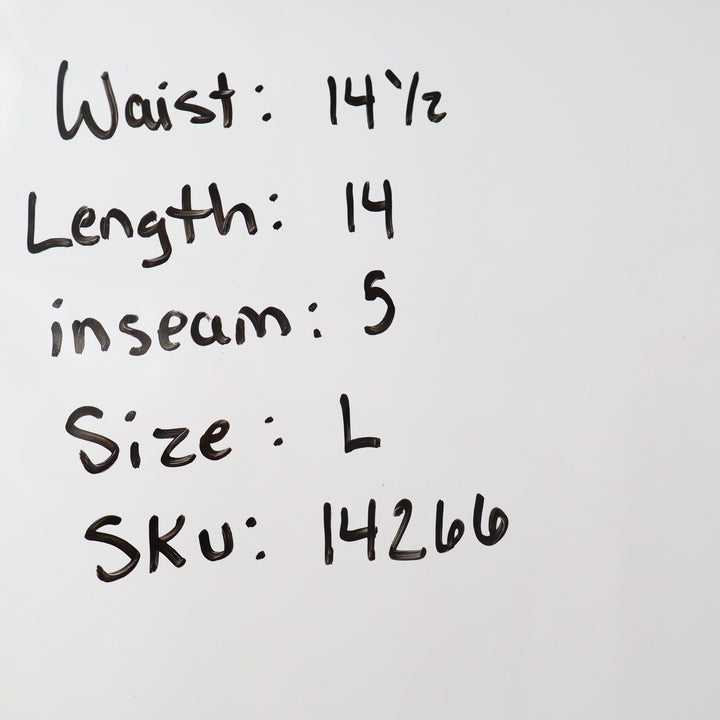 Waist: 14 1/2
Length: 14
inseam: 5
Size: L
SKU: 14266